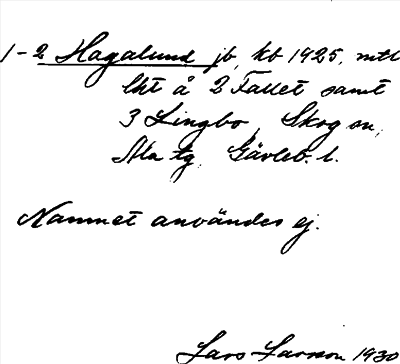 1-2 Hagalund jb, kb 1925, mtl
lht å 2 Fallet samt
3 Lingbo, Skog sn,
Ala tg, Gävleb. l.
Namnet användes ej.
Lars Larsson 1930